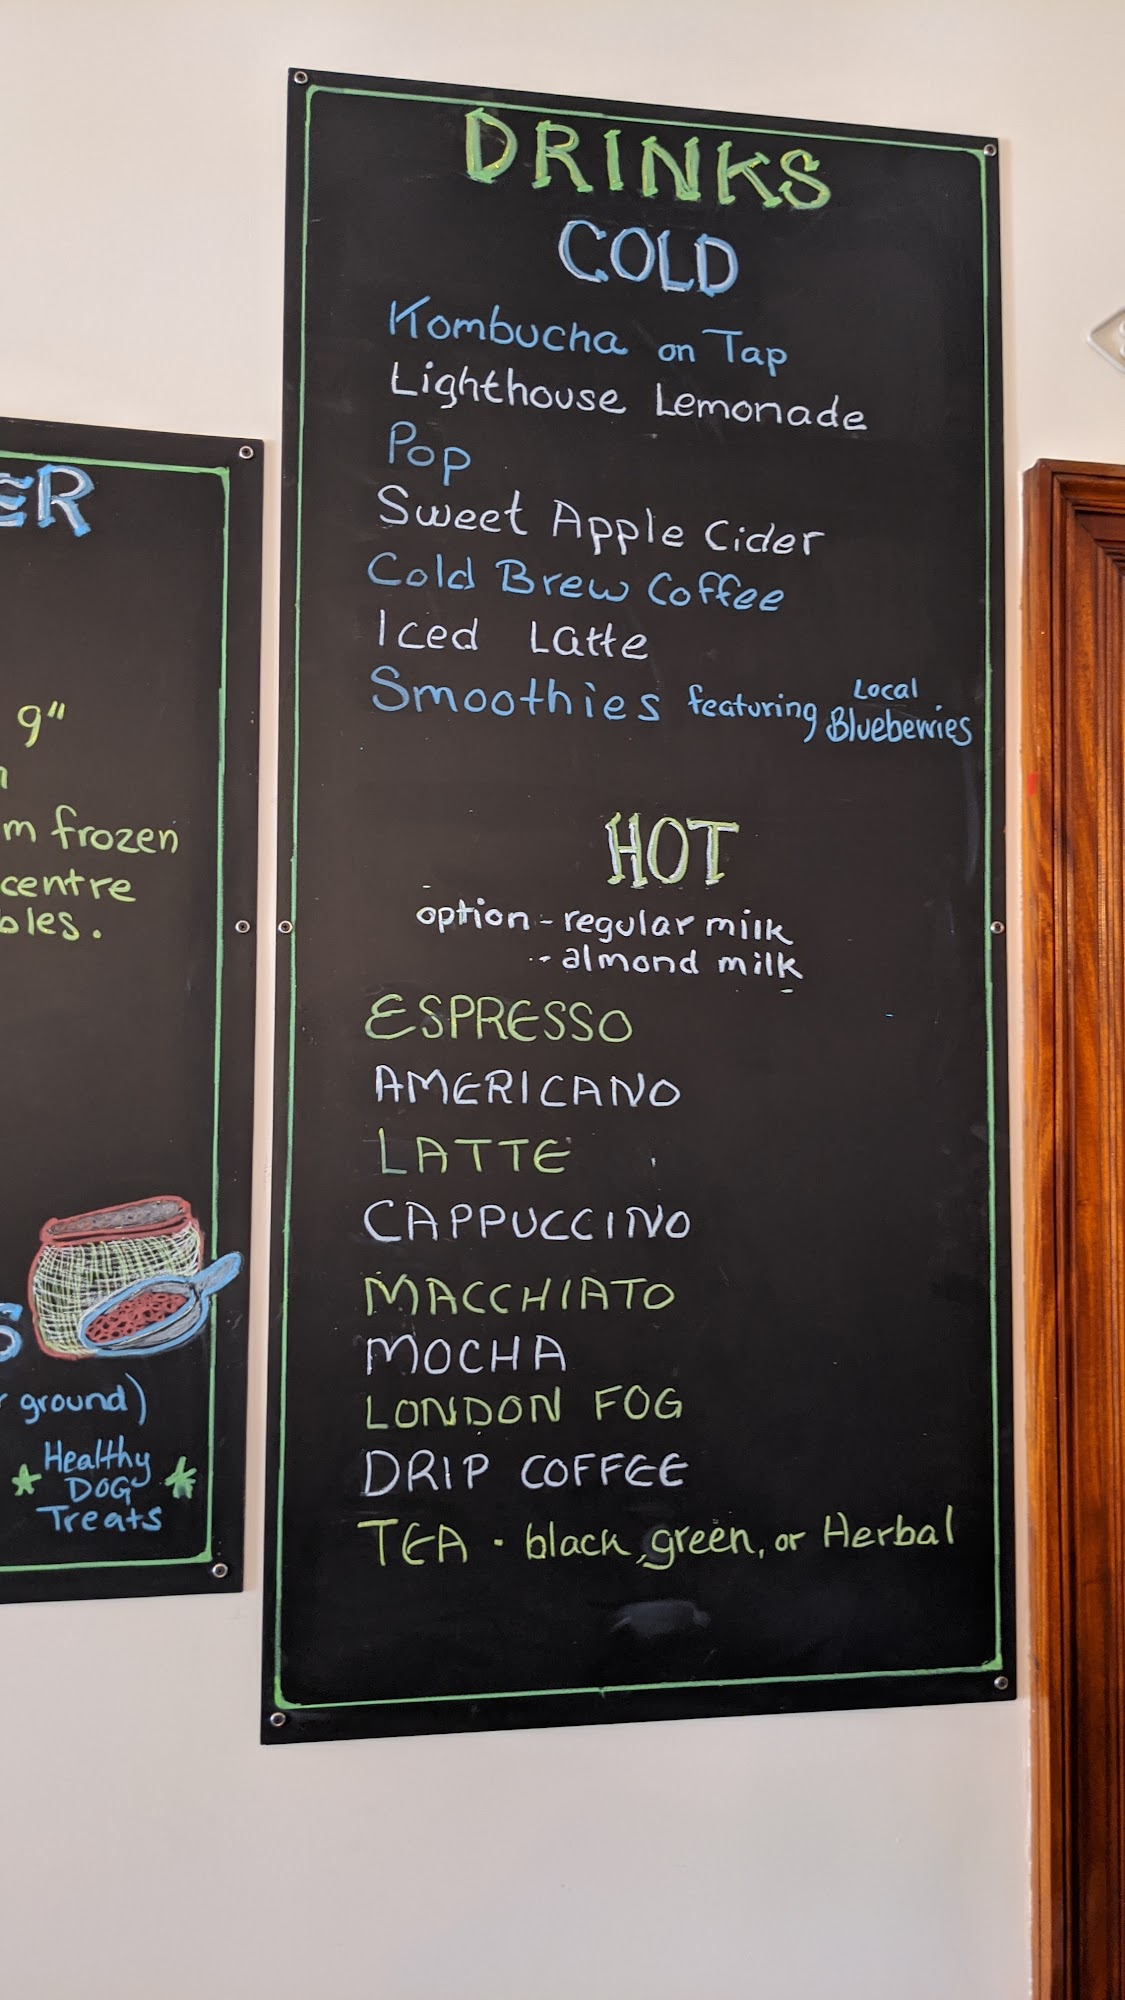 DRINKS
COLD
Kombucha on Tap
Lighthouse Lemonade
Pop
Sweet Apple Cider
Cold Brew Coffee
Iced Latte
Smoothies featuring Local Blueberries
HOT
option - regular milk
- almond milk
ESPRESSO
AMERICANO
LATTE
CAPPUCCINO
MACCHIATO
MOCHA
LONDON FOG
DRIP COFFEE
TEA • black, green, or Herbal
9"
frozen
centre
ground)
Healthy
DOG
Treats